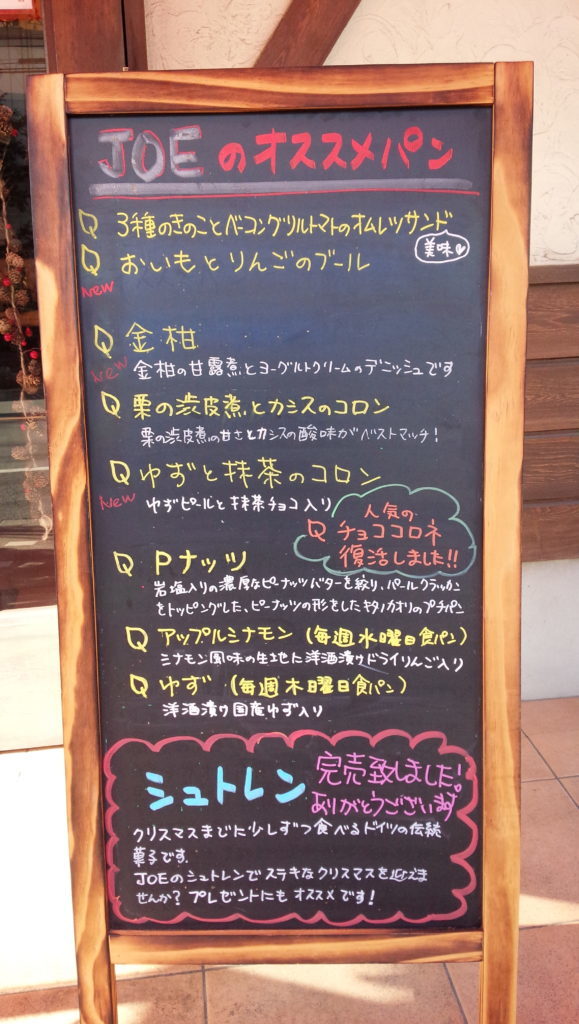 JOEのオススメパン
Q 3種のきのことベーコングリルトマトのオムレツサンド
美味
Q おいもとりんごのブール
New
Q 金柑
New 金柑の甘露煮とヨーグルトクリームのデニッシュです
Q 栗の渋皮煮とカシスのコロン
栗の渋皮煮の甘さとカシスの酸味がベストマッチ!
Q ゆずと抹茶のコロン
New ゆずピールと抹茶チョコ入り
人気の
Q チョココロネ
復活しました!!
Q Pナッツ
岩塩入りの濃厚なピーナッツバターを絞り、パールクラッカン
をトッピングした、ピーナッツの形をしたキタノカオリのプチパン
Q アップルシナモン (毎週水曜日食パン)
シナモン風味の生地に洋酒漬けドライりんご入り
Q ゆず (毎週木曜日食パン)
洋酒漬け国産ゆず入り
シュトレン 完売致しました!
ありがとうございます
クリスマスまでに少しずつ食べるドイツの伝統
菓子です.
JOEのシュトレンでステキなクリスマスを迎えま
せんか? プレゼントにもオススメです!